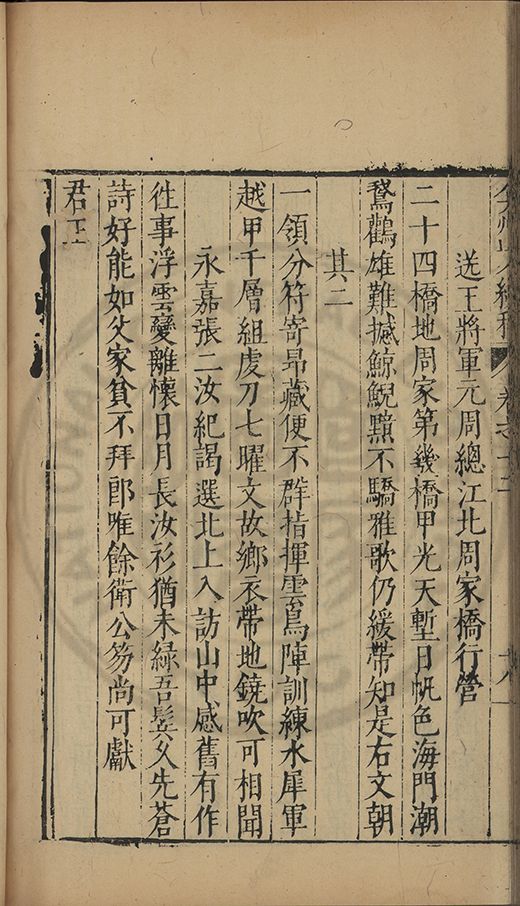 弇州山人續稿 卷之十二 十八
送王將軍元周總江北周家橋行營
二十四橋地周家第幾橋甲光天塹日帆色海門潮
鵞鸛雄難撼鯨鯢黠不驕雅歌仍緩帶知是右文朝
其二
一領分符寄昂藏便不群指揮雲鳥陣訓練水犀軍
越甲千層組虔刀七曜文故鄉衣帶地鐃吹可相聞
永嘉張二汝紀謁選北上入訪山中感舊有作
徃事浮雲變離懷日月長汝衫猶未緑吾鬂久先蒼
詩好能如父家貧不拜郎唯餘衛公笏尚可獻
君王